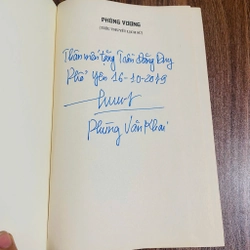 PHÙNG VƯƠNG
Thân mến tặng Trần Đăng Duy
Phổ Yên 16-10-2019
Phùng Văn Khai